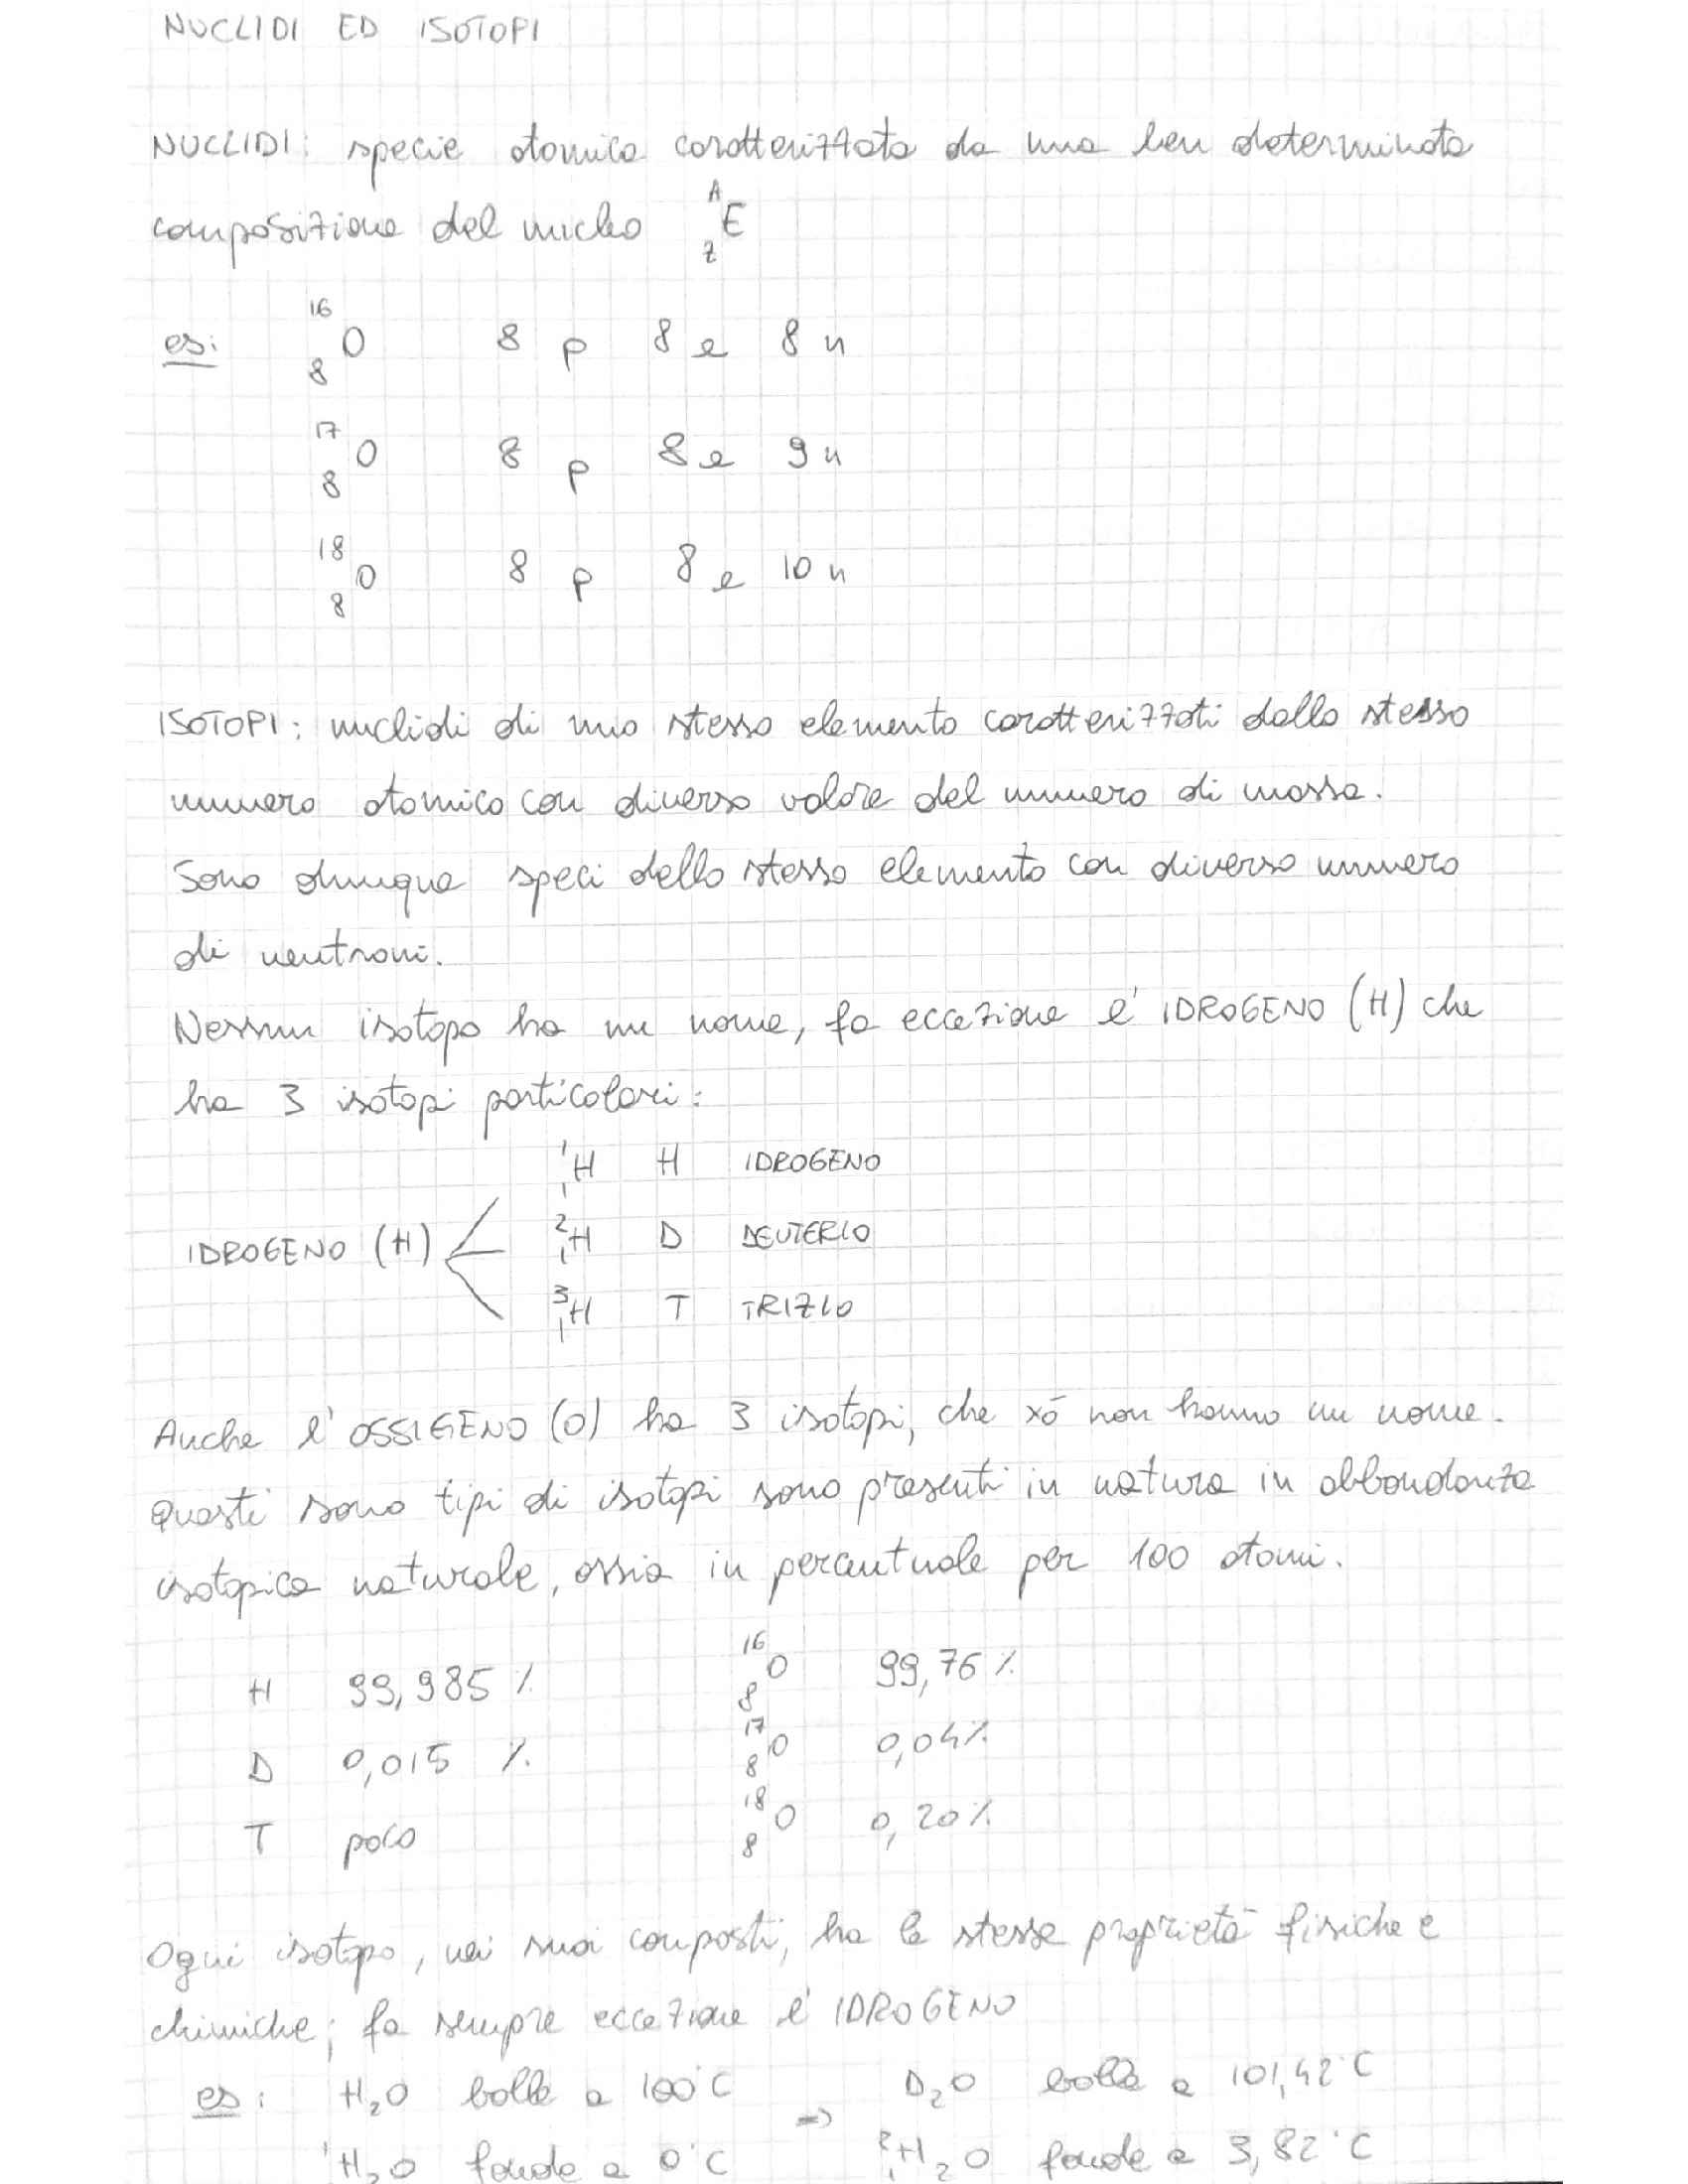 NUCLIDI ED ISOTOPI
NUCLIDI: specie atomica caratterizzata da una ben determinata
composizione del nucleo ᴬ_Z E
es: ¹⁶₈O 8 p 8 e 8 n
¹⁷₈O 8 p 8 e 9 n
¹⁸₈O 8 p 8 e 10 n
ISOTOPI: nuclidi di uno stesso elemento caratterizzati dallo stesso
numero atomico con diverso valore del numero di massa.
Sono dunque speci dello stesso elemento con diverso numero
di neutroni.
Nessun isotopo ha un nome, fa eccezione l'IDROGENO (H) che
ha 3 isotopi particolari:
¹₁H H IDROGENO
IDROGENO (H) ²₁H D DEUTERIO
³₁H T TRIZIO
Anche l'OSSIGENO (O) ha 3 isotopi, che xó non hanno un nome.
Questi sono tipi di isotopi sono presenti in natura in abbondanza
isotopica naturale, ossia in percentuale per 100 atomi.
H 99,985 % ¹⁶₈O 99,76 %
D 0,015 % ¹⁷₈O 0,04 %
T poco ¹⁸₈O 0,20 %
Ogni isotopo, nei suoi composti, ha le stesse proprietà fisiche e
chimiche; fa sempre eccezione l'IDROGENO
es: H₂O bolle a 100°C => D₂O bolle a 101,42°C
¹₁H₂O fonde a 0°C ²₁H₂O fonde a 3,82°C